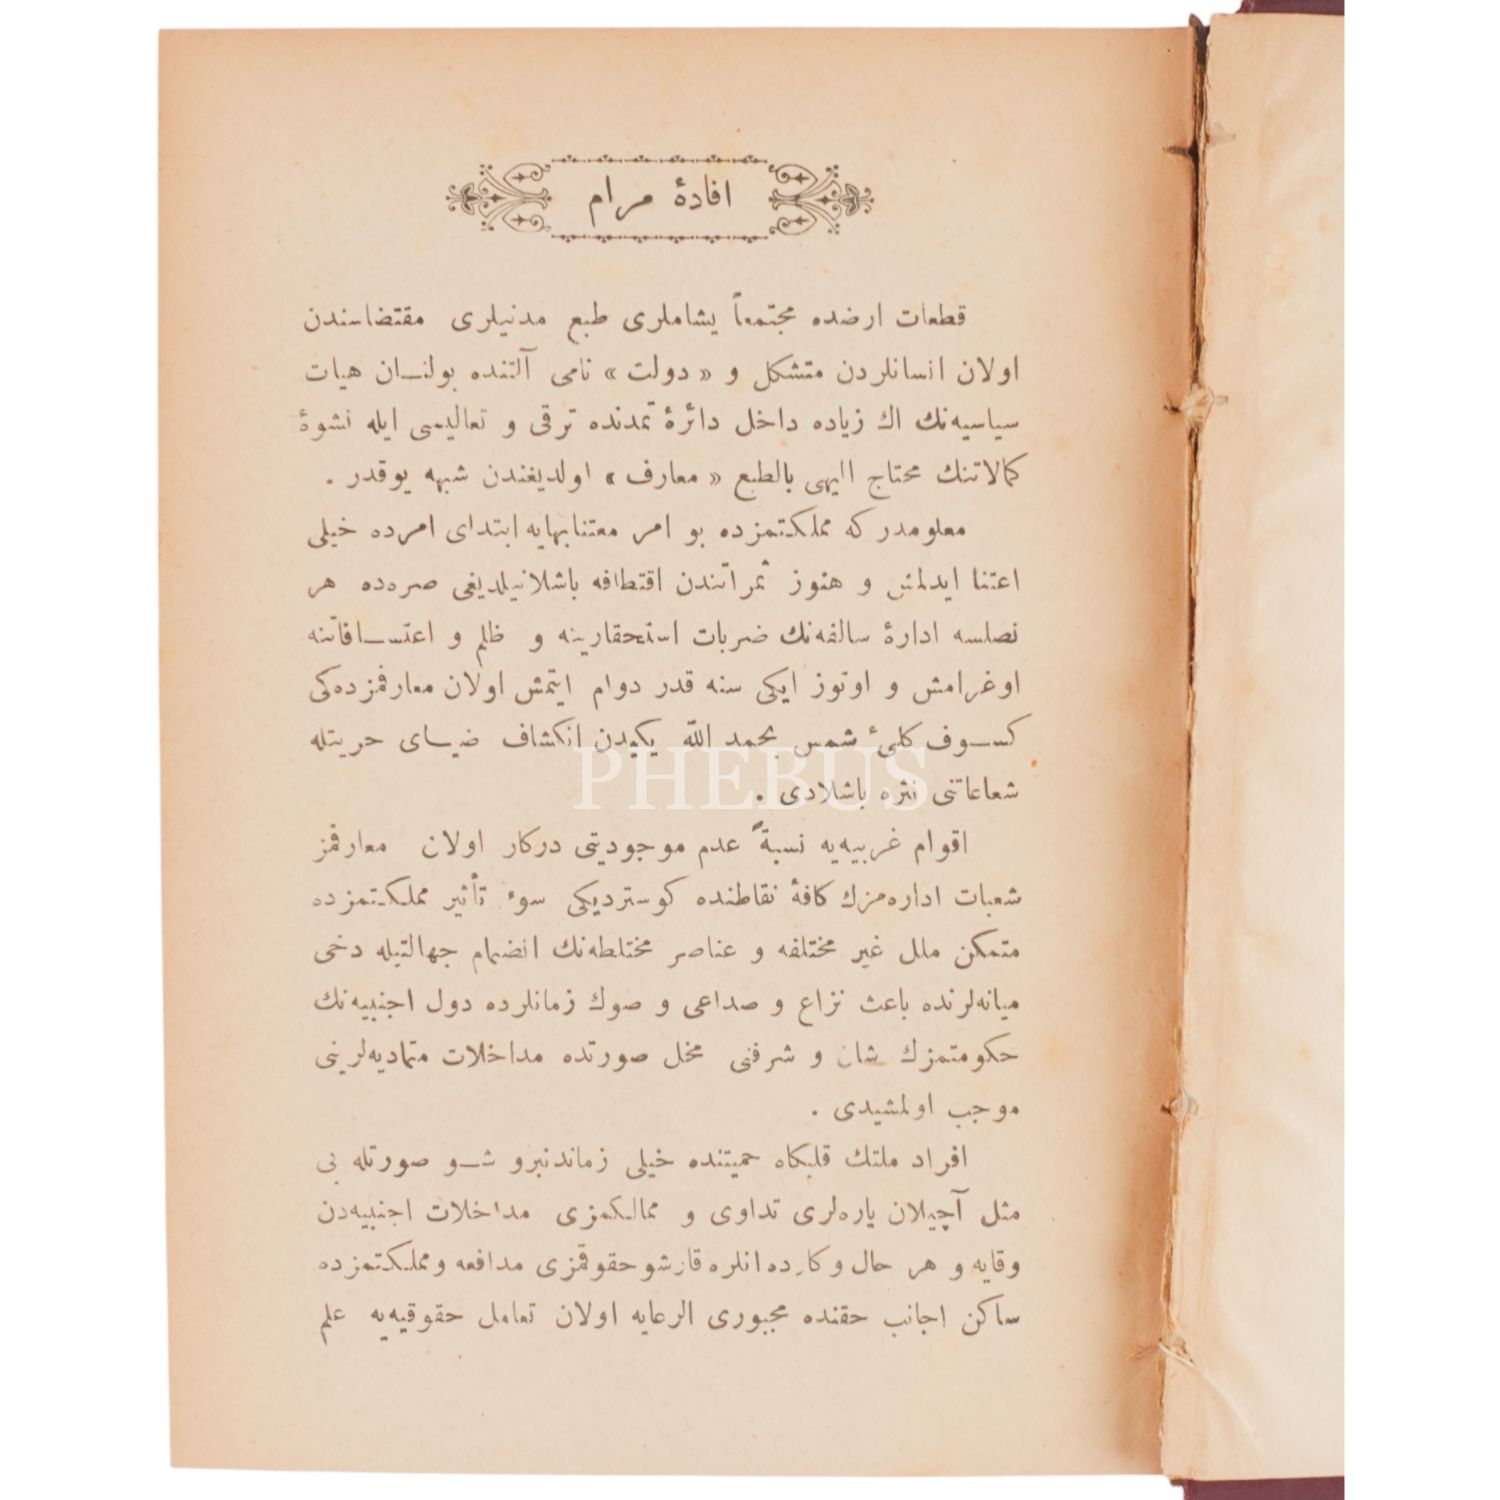 افادهٔ مرام
قطعات ارضده مجتمعاً يشاملرى طبع مدنيلرى مقتضاسندن
اولان انسانلردن متشكل و « دولت » نامى آلتنده بولنـان هيات
سياسيه‌نك اك زياده داخل دائرهٔ تمدنده ترقى و تعاليسى ايله نشوهٔ
كمالاتنك محتاج اليهى بالطبع « معارف » اولديغندن شبهه يوقدر .
معلومدر كه مملكتمزده بو امر معتنابهايه ابتداى امرده خيلى
اعتنا ايدلمش و هنوز ثمراتندن اقتطافه باشلانيلديغى صره‌ده هر
نصلسه ادارهٔ سالفه‌نك ضربات استحقارينه و ظلم و اعتسـافاتنه
اوغرامش و اوتوز ايكى سنه قدر دوام ايتمش اولان معارفمزده‌كى
كسـوف كلئ شمس بحمد الله يكيدن انكشاف ضيـاى حريتله
شعاعاتنى نثره باشلادى .
اقوام غربيه‌يه نسبةً عدم موجوديتى دركار اولان معارفمز
شعبات اداره‌مزك كافهٔ نقاطنده كوسترديكى سوء تأثير مملكتمزده
متمكن ملل غير مختلفه و عناصر مختلطه‌نك انضمام جهالتيله دخى
ميانه‌لرنده باعث نزاع و صداعى و صوك زمانلرده دول اجنبيه‌نك
حكومتمزك شان و شرفنى مخل صورتده مداخلات متماديه‌لرينى
موجب اولمشيدى .
افراد ملتك قلبكاه حميتنده خيلى زماندنبرو شـو صورتله بى
مثل آچيلان ياره‌لرى تداوى و ممالكمزى مداخلات اجنبيه‌دن
وقايه و هر حال و كارده انلره قارشو حقوقمزى مدافعه و مملكتمزده
ساكن اجانب حقنده مجبورى الرعايه اولان تعامل حقوقيه‌يه علم
PHEBUS